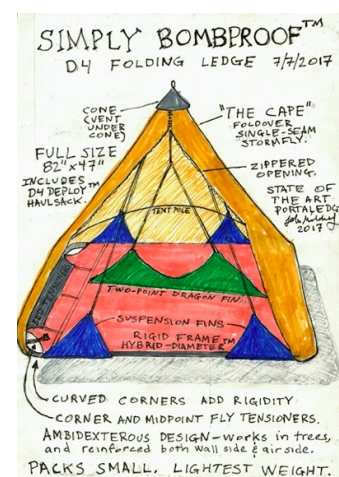 SIMPLY BOMBPROOF™
D4 FOLDING LEDGE 7/7/2017
CONE
(VENT
UNDER
CONE)
"THE CAPE"
FOLDOVER
SINGLE-SEAM
STORMFLY.
FULL SIZE
82"x47"
INCLUDES
D4 DEPLOY™
HAULSACK.
ZIPPERED
OPENING.
STATE OF
THE ART
PORTALEDGE
2017
TENT POLE
TWO-POINT DRAGON FIN.
SUSPENSION FINS
RIGID FRAME™
HYBRID-DIAMETER
CURVED CORNERS ADD RIGIDITY
CORNER AND MIDPOINT FLY TENSIONERS.
AMBIDEXTEROUS DESIGN-works in trees,
and reinforced both wall side & airside.
PACKS SMALL. LIGHTEST WEIGHT.